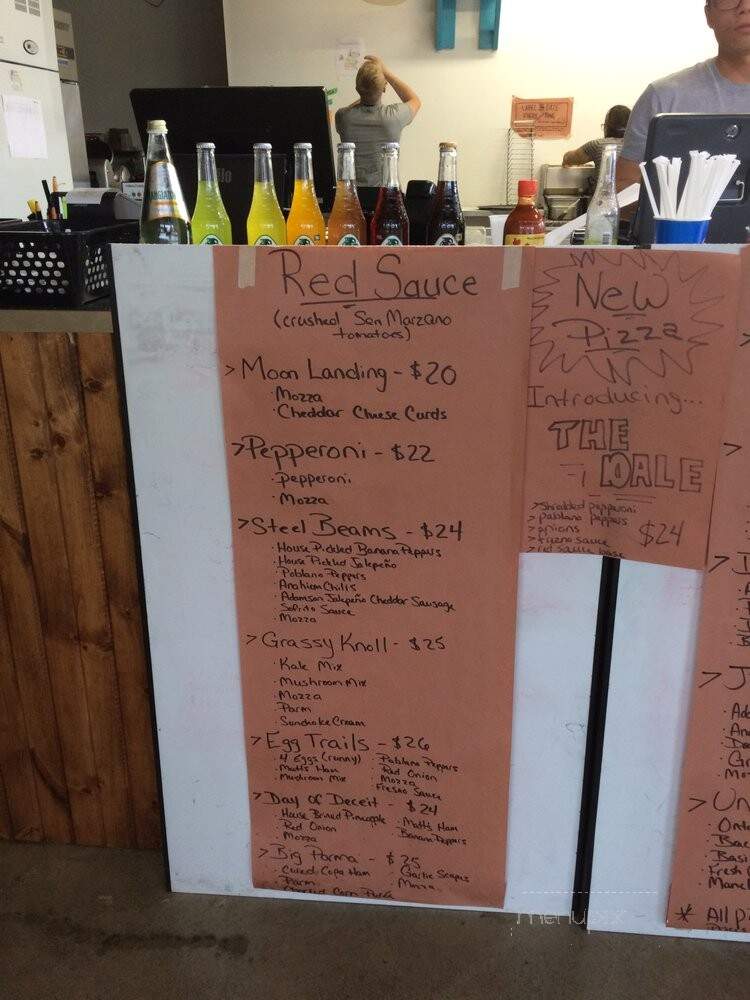 Red Sauce
(crushed San Marzano
tomatoes)
> Moon Landing - $20
· Mozza
· Cheddar Cheese Curds
> Pepperoni - $22
· Pepperoni
· Mozza
> Steel Beams - $24
· House Pickled Banana Peppers
· House Pickled Jalepeño
· Poblano Peppers
· Anahiem Chilis
· Adamson Jalepeño Cheddar Sausage
Sofrito Sauce
· Mozza
> Grassy Knoll - $25
· Kale Mix
· Mushroom Mix
· Mozza
· Parm
· Sunchoke Cream
> Egg Trails - $26
· 4 Eggs (runny)
· Matts Ham
· Mushroom Mix
· Pablano Peppers
· Red Onion
· Mozza
· Fresno Sauce
> Day of Deceit - $24
· House Brined Pineapple
· Red Onion
· Mozza
· Matts Ham
· Banana Peppers
> Big Parma - $25
· Cured Copa Ham
· Parm
· Corn
· Garlic Scapes
· Mozza
New
Pizza
Introducing...
THE
DALE
> Shredded pepperoni
> pablano peppers
> onions
> frezno sauce
> red sauce base
$24
LABEL
> J
> Un
· Onto
· Bac
· Basi
· Fresh
· Manc
* All pi
menupix